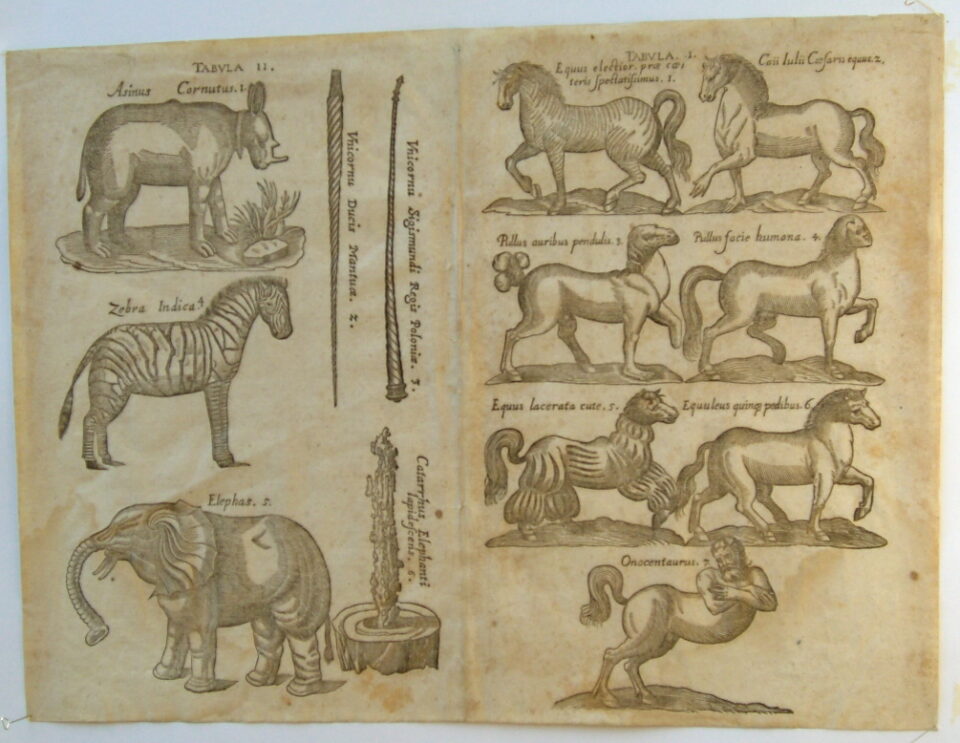 TABVLA II.
Asinus Cornutus. 1.
Vnicornu Ducis Mantuæ. 2.
Vnicornu Sigismundi Regis Poloniæ. 3.
Zebra Indica 4
Elephas. 5.
Catarrhus Elephanti
lapidescens. 6.
TABVLA. I.
Equus electior. præ cæ
teris spectatissimus. 1.
Caii Iulii Cæsaris equus. 2.
Pullus auribus pendulis. 3.
Pullus facie humana. 4.
Equus lacerata cute. 5.
Equuleus quinq; pedibus. 6.
Onocentaurus. 7.